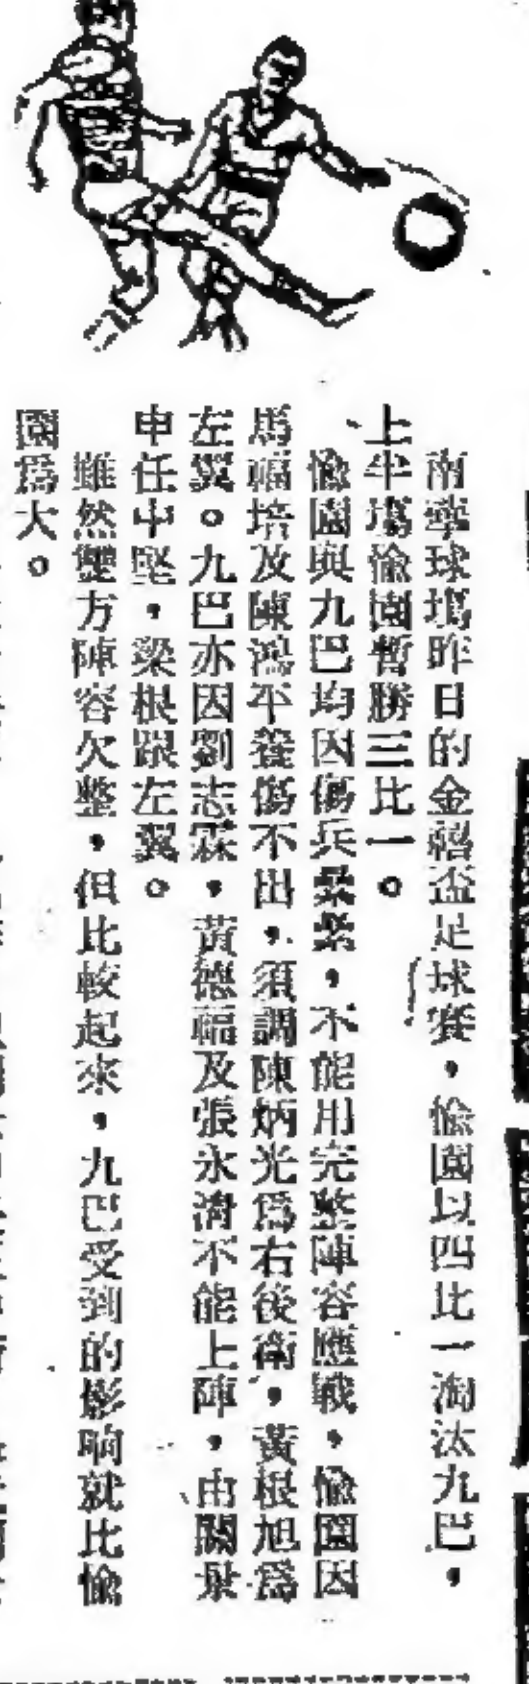 南華球塲昨日的金禧盃足球賽，愉園以四比一淘汰九巴，
上半塲愉園暫勝三比一。
愉園與九巴均因傷兵纍纍，不能用完整陣容應戰，愉園因
馬福培及陳鴻平養傷不出，須調陳炳光爲右後衛，黃根旭爲
左翼。九巴亦因劉志霖，黃德福及張永濟不能上陣，由關
申任中堅，梁根跟左翼。
雖然雙方陣容欠整，但比較起來，九巴受到的影响就比愉
園爲大。